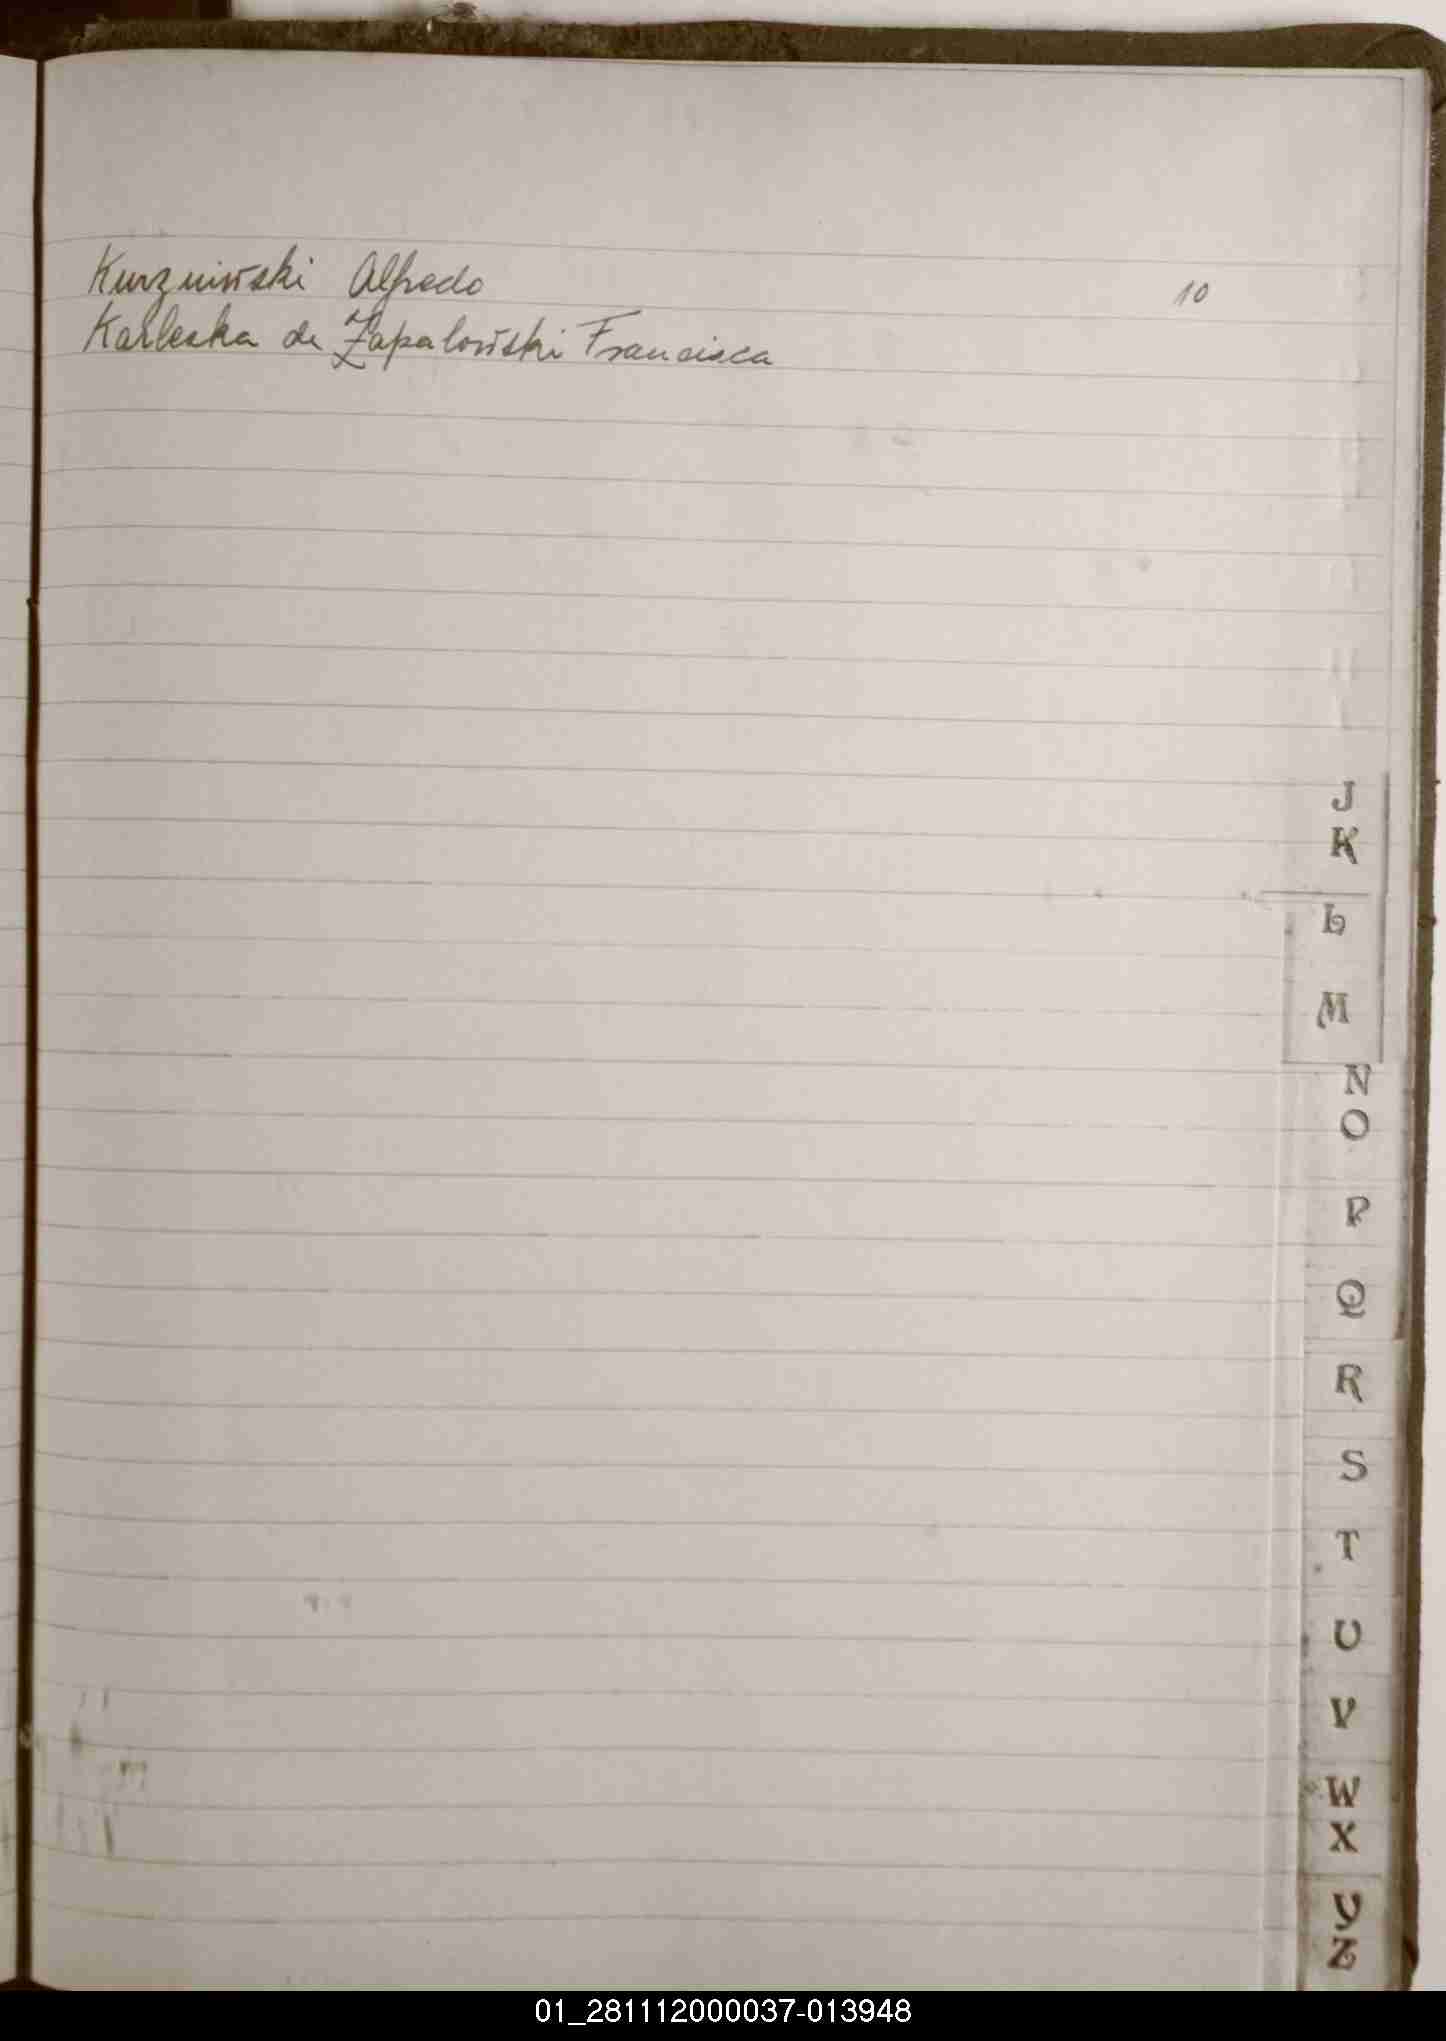 Kurzniwski Alfredo 10
Karleska de Zapalowski Francisca
J
K
L
M
N
O
P
Q
R
S
T
U
V
W
X
Y
Z
01_281112000037-013948